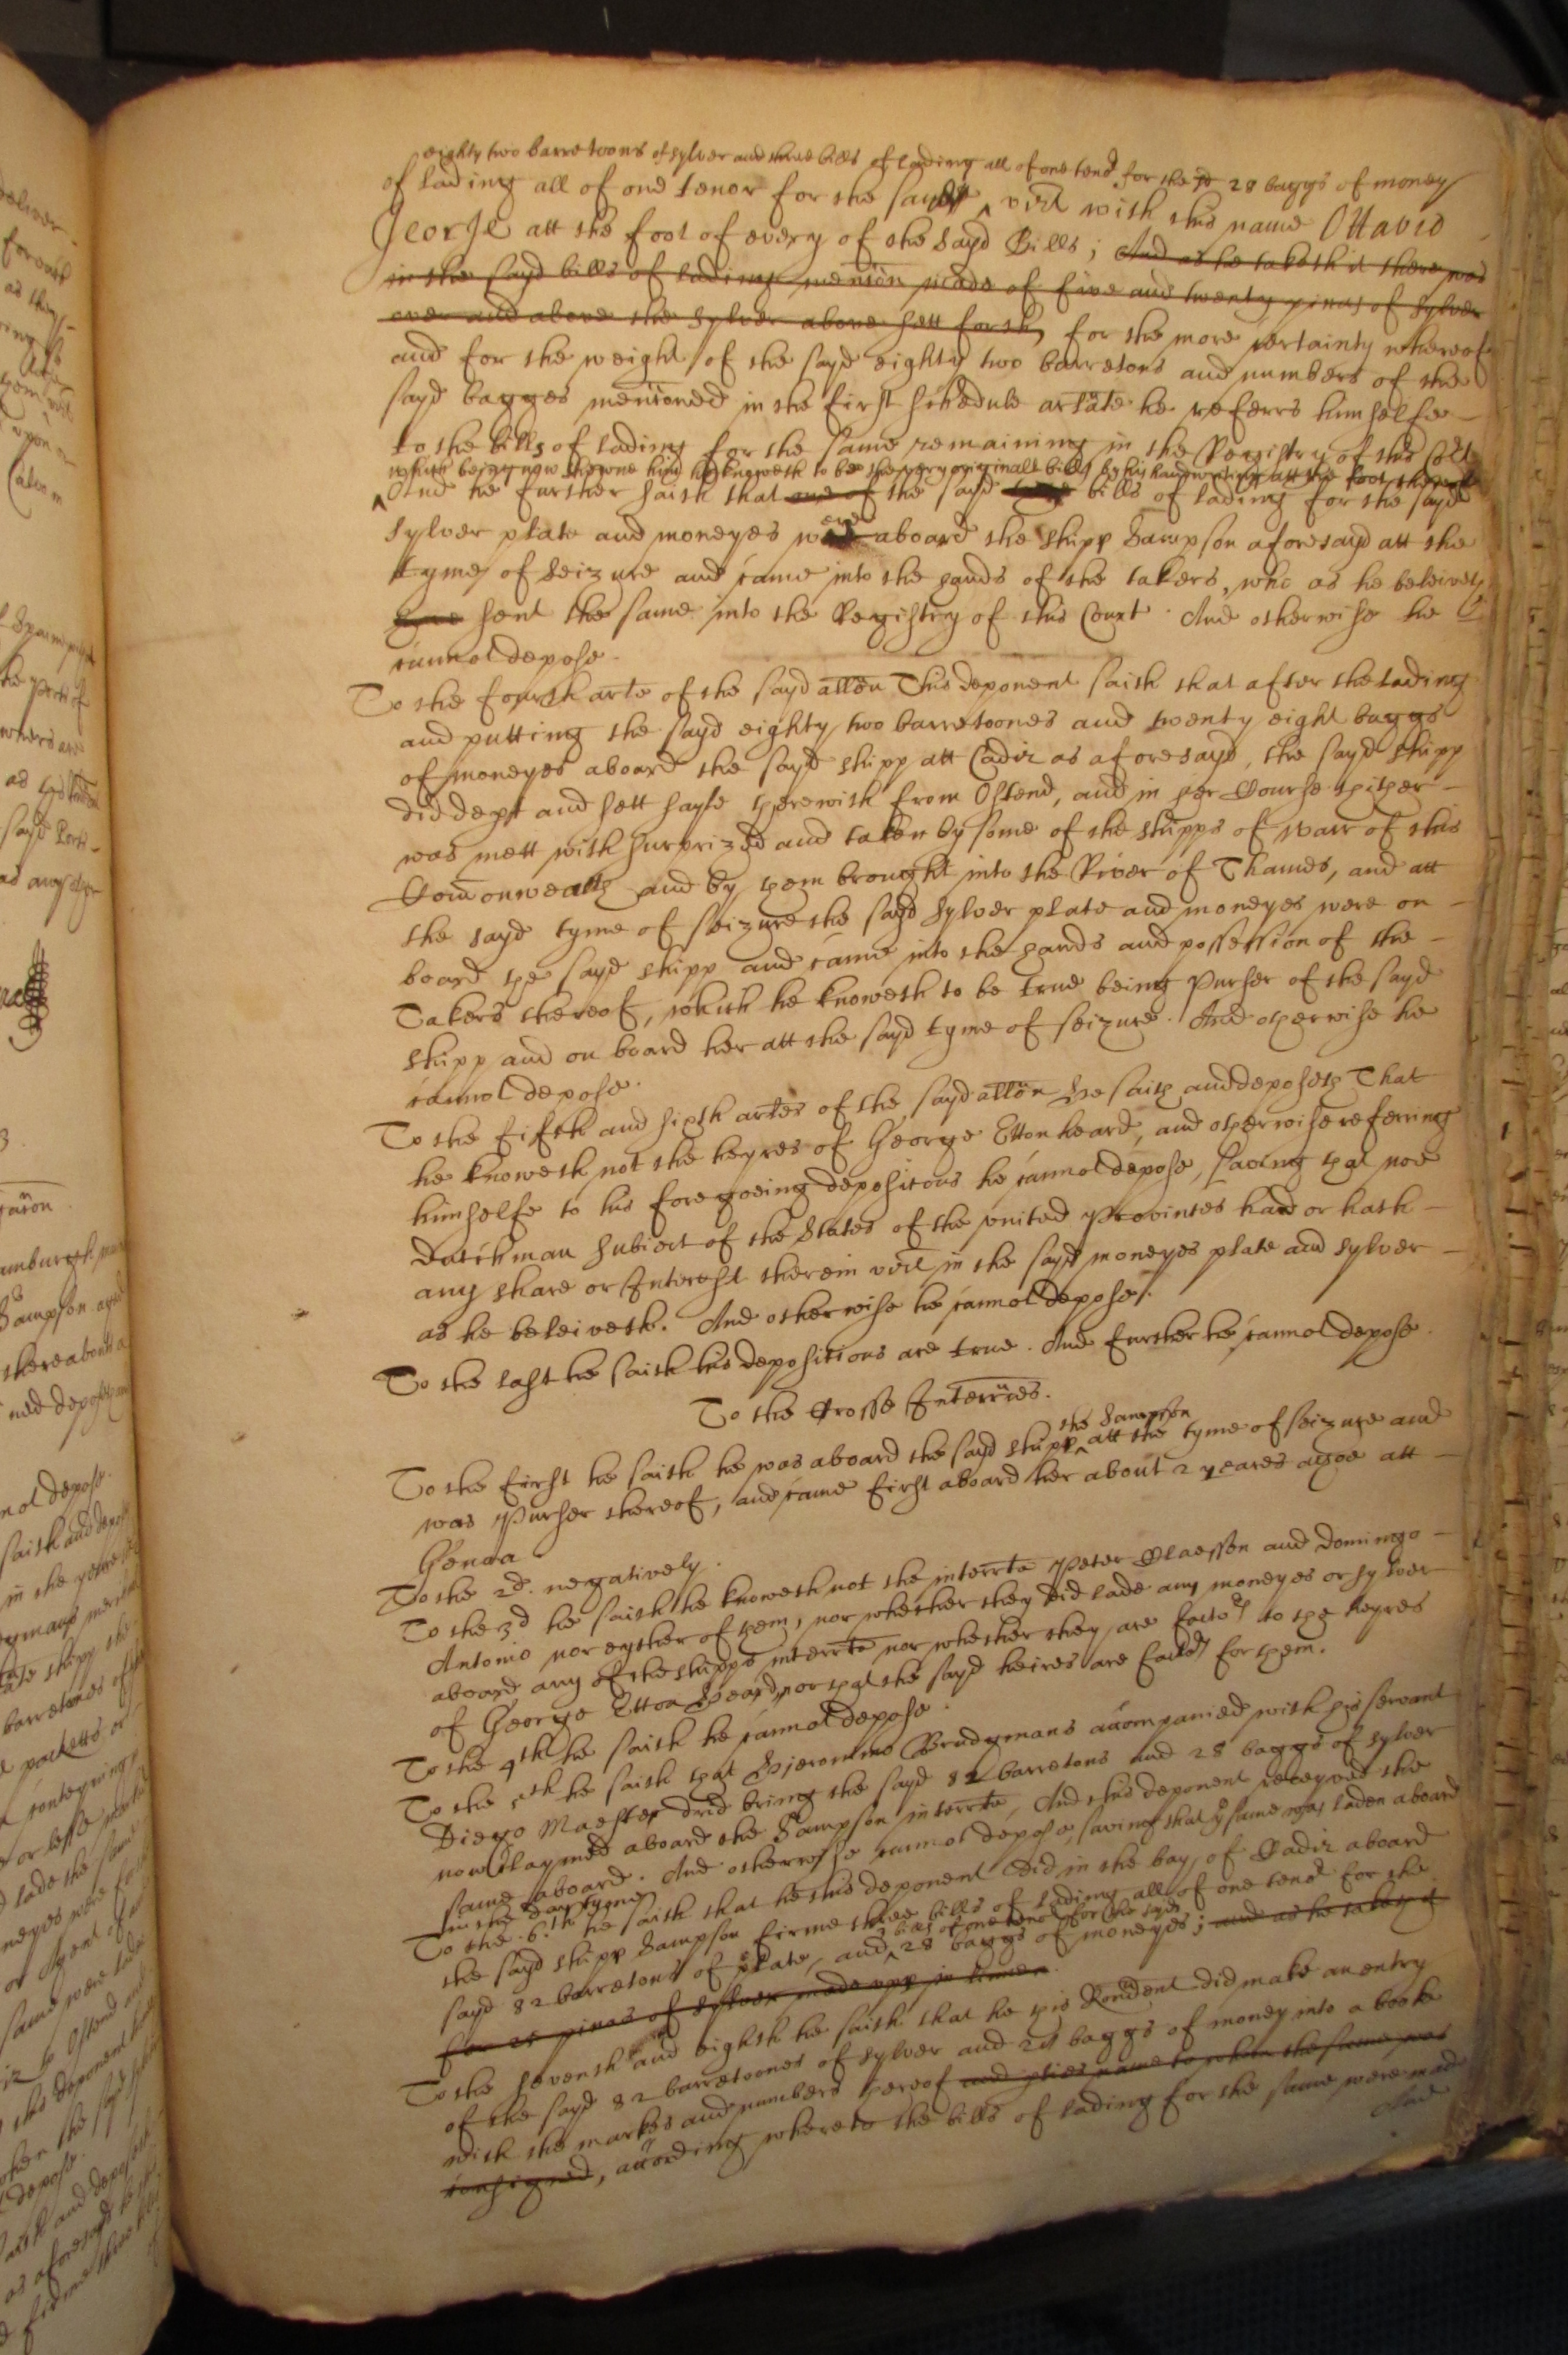 eighty two barretoons of sylver and three bills of lading all of one tenor for the sd 28 baggs of money
of lading all of one tenor for the sayd vizt with this name Ottavio
George att the foot of every of the sayd Bills; And as he taketh it there was
in the sayd bills of lading mention made of five and twenty pinas of sylver
over and above the sylver above sett forth, for the more certainty whereof
and for the weight of the sayd eighty two barretons and numbers of the
sayd bagges mentioned in the first schedule arlate he referrs himselfe
to the bills of lading for the same remaining in the Registry of this Cort
which being now showne him he knoweth to be the very originall bills by his handwriting att the foot thereof
And he further saith that one of the sayd bills of lading for the sayd
sylver plate and moneyes were aboard the shipp Sampson aforesayd att the
tyme of seizure and came into the hands of the takers, who as he beleiveth
have sent the same into the Registry of this Court. And otherwise he
cannot depose.
To the fourth arte of the sayd allon This deponent saith that after the lading
and putting the sayd eighty two barretoones and twenty eight baggs
of moneyes aboard the sayd shipp att Cadiz as aforesayd, the sayd shipp
did dept and sett sayle therewith from Ostend, and in her Course thither
was mett with surprized and taken by some of the shipps of warr of this
Comonwealth and by them brought into the River of Thames, and att
the sayd tyme of seizure the sayd sylver plate and moneyes were on
board the sayd shipp and came into the hands and possession of the
Takers thereof, which he knoweth to be true being Purser of the sayd
shipp and on board her att the sayd tyme of seizure. And otherwise he
cannot depose.
To the fifth and sixth artes of the sayd allon He saith and deposeth That
he knoweth not the heyres of George Etton heard, and otherwise referring
himselfe to his foregoeing depositons he cannot depose, saving that noe
Dutchman subiect of the States of the united Provinces had or hath
any share or Interest therein vizt in the sayd moneyes plate and sylver
as he beleiveth. And otherwise he cannot depose.
To the last he saith his depositions are true. And further he cannot depose.
To the Crosse Interries.
the Sampson
To the first he saith he was aboard the sayd shipp att the tyme of seizure and
was Purser thereof, and came first aboard her about 2 yeares agoe att
Genoa.
To the 2d. negatively.
To the 3d he saith he knoweth not the interrte Peter Claessen and Domingo
Antonio nor eyther of them, nor whether they did lade any moneyes or sylver
aboard any of the shipps interrte nor whether they are factors to the heyres
of George Etton Heard, nor that the sayd heires are factors for them.
To the 4th he saith he cannot depose.
To the 5th he saith that Hieronimo Brudymans accompanied with his servant
Diego Maester did bring the sayd 82 barretons and 28 baggs of sylver
now claymed aboard the Sampson interrte, And this deponent receyved the
same aboard. And otherwise cannot depose, saving that ye same was laden aboard
in the day tyme
To the 6.th he saith that he this deponent did in the bay of Cadiz aboard
the sayd shipp Sampson firme three bills of lading all of one tenor for the
3 bills of one tenor for the sayd
sayd 82 barretons of plate, and 28 baggs of moneyes; and as he taketh it
for 25 pinas of sylver made upp in
To the seventh and eighth he saith that he this Rendent did make an entry
of the sayd 82 barretoones of sylver and 28 baggs of money into a booke
with the markes and numbers thereof and the name to whom the same was
consigned, according whereto the bills of lading for the same were made
And